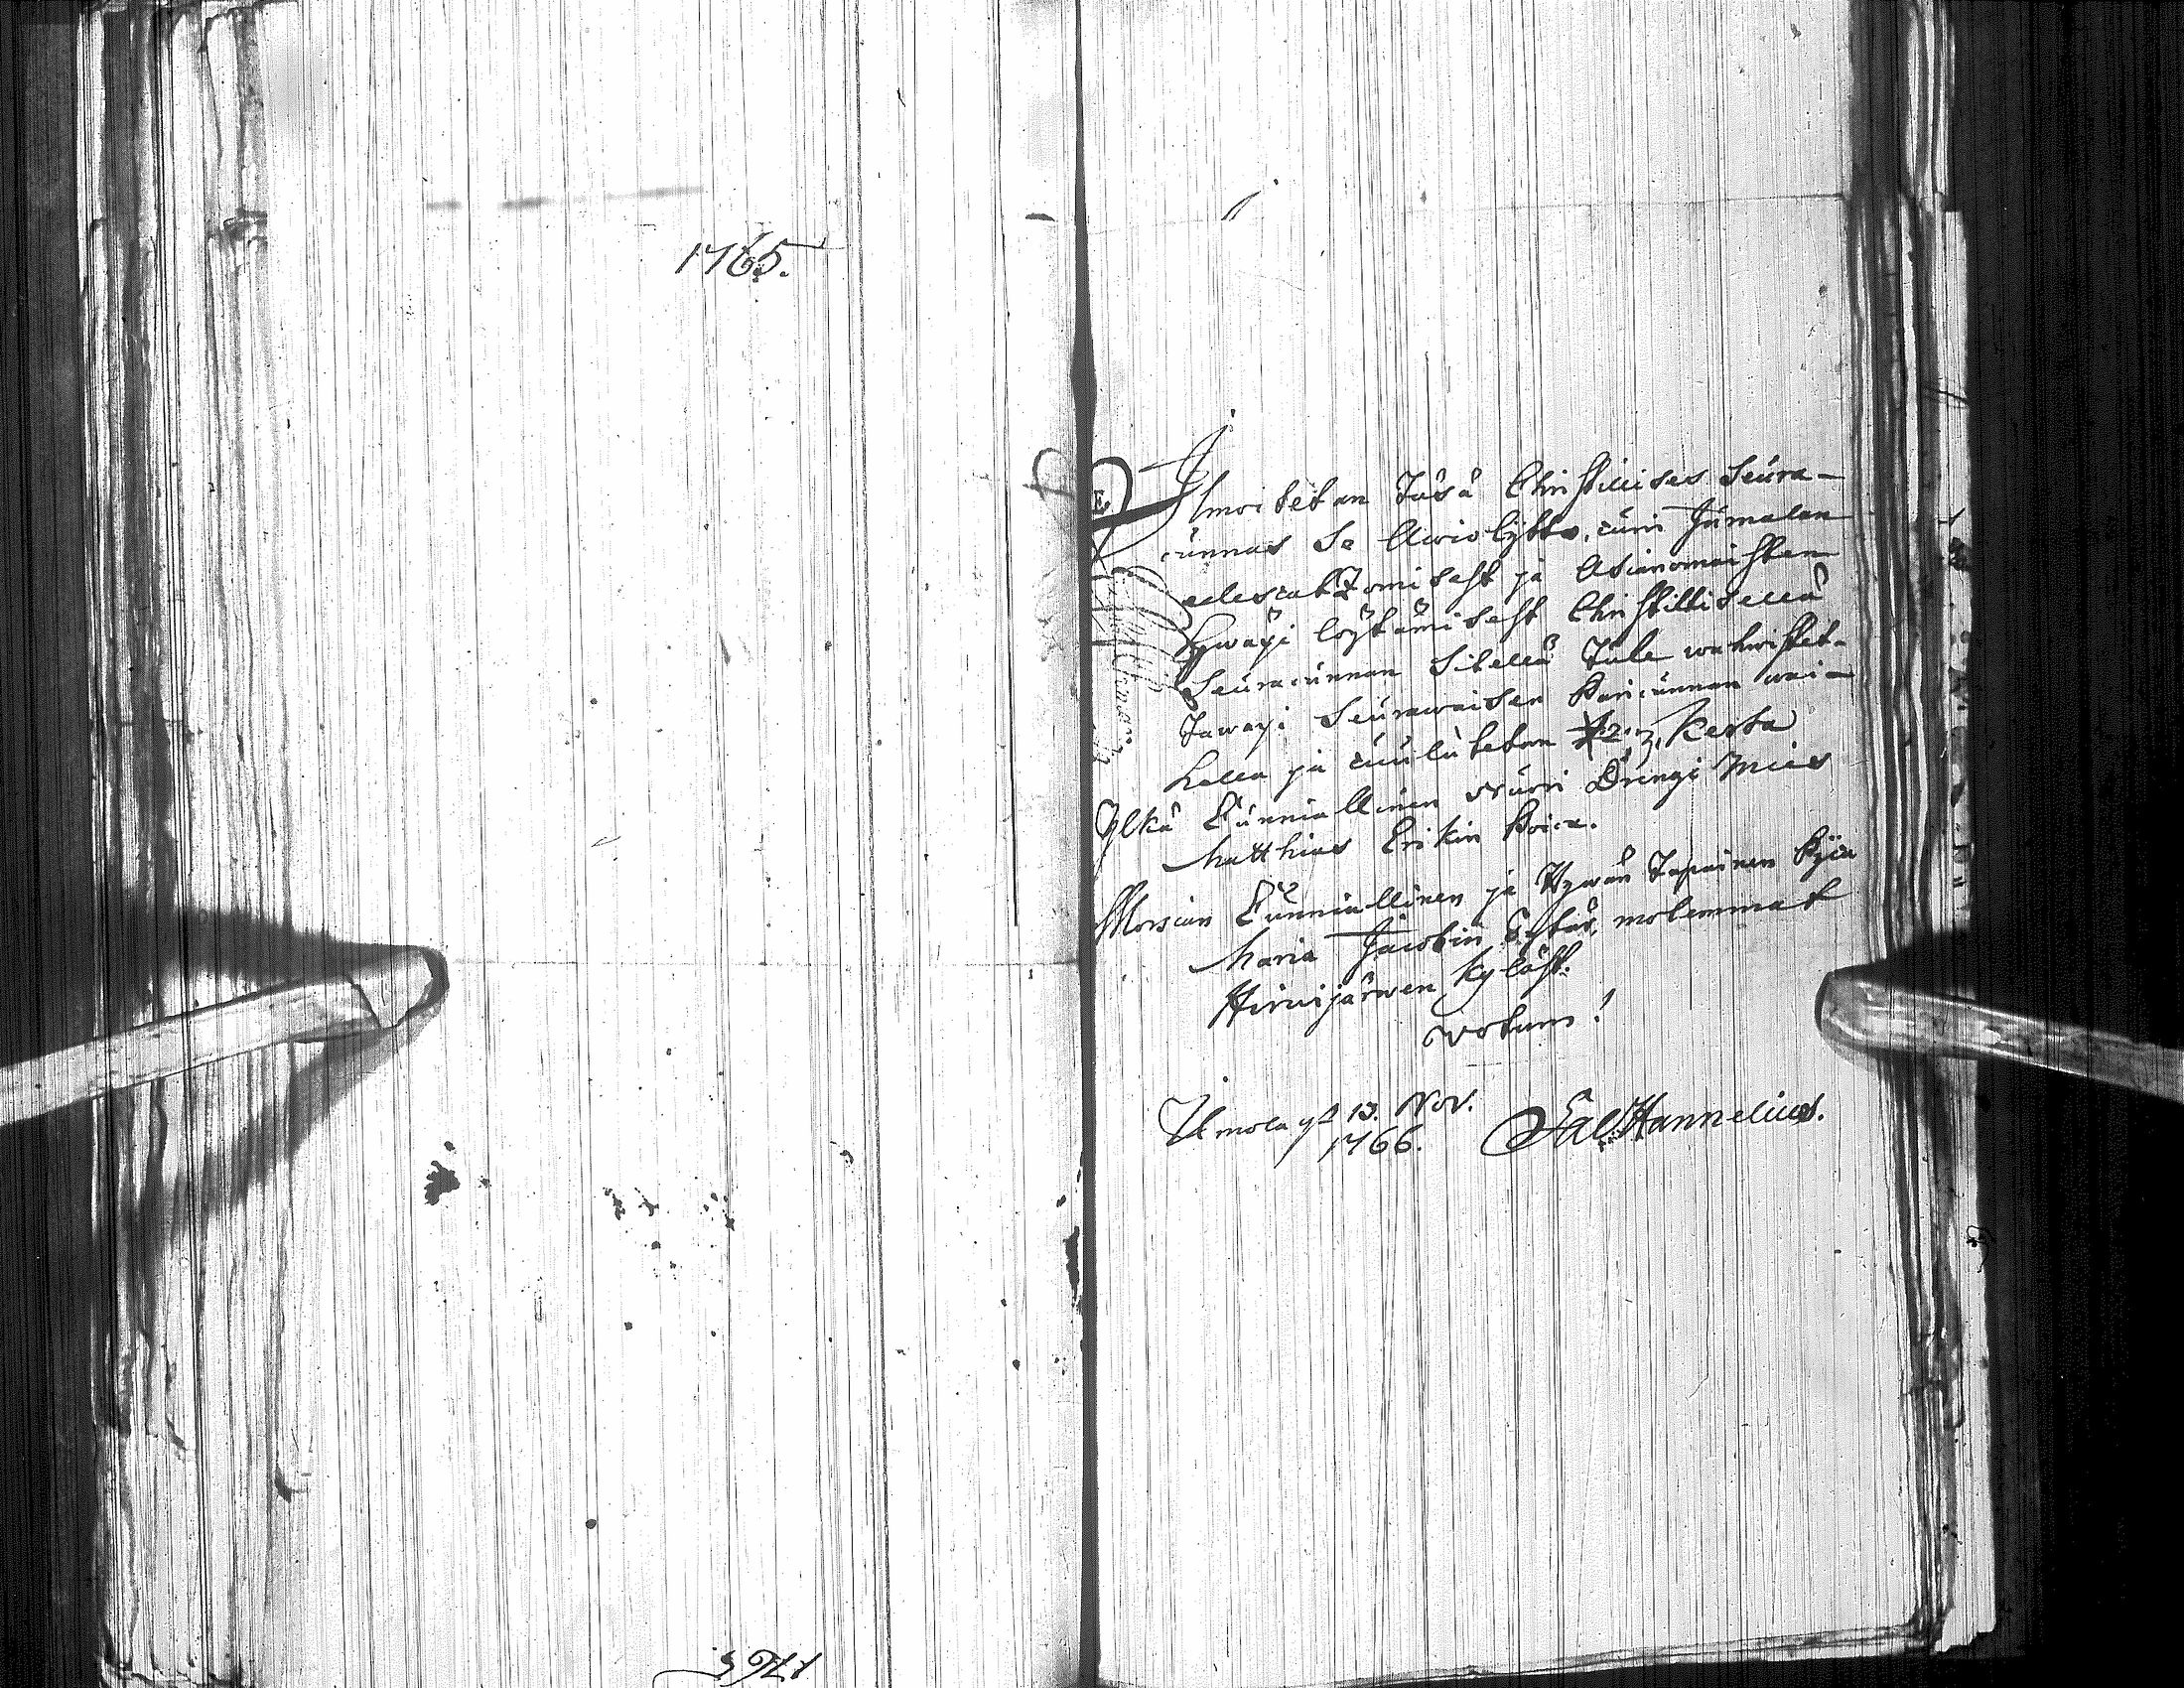 1765.
Ilmoitetan Täsä Christillises Seura-
cunnas Se Awiolijtto, cuin Jumalan
edescatzomisest ja Asianomaisten
hywäxi löytämisest Christillisellä
Seuracunnan Sitellä Tule wahwistet-
tawaxi Seurawaisen Pariicunnan wai-
hella ja cuulutetan 1. 2. 3. Kerta
Ylkä Cunniallinen Nuori Drengi Mies
Matthias Erikin Poica.
Morsian Cunniallinen ja Hywän Tapainen Pijca
Maria Jacobin Tytär, molemmat
Hirwijärwen Kyläst.
Votum!
Ulmola yst 13. Nov.
1766.
Sal Hannelius.
1765